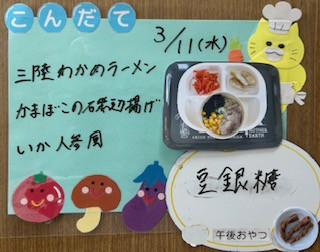 こんだて
3/11(水)
三陸わかめラーメン
かまぼこの石炭辺揚げ
いか人参風
豆銀糖
午後おやつ